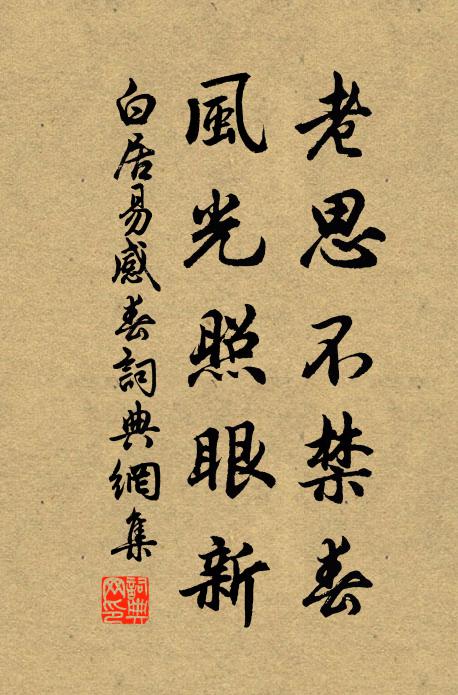 老思不禁春
風光照眼新
白居易感春詞典網集
詞典網印